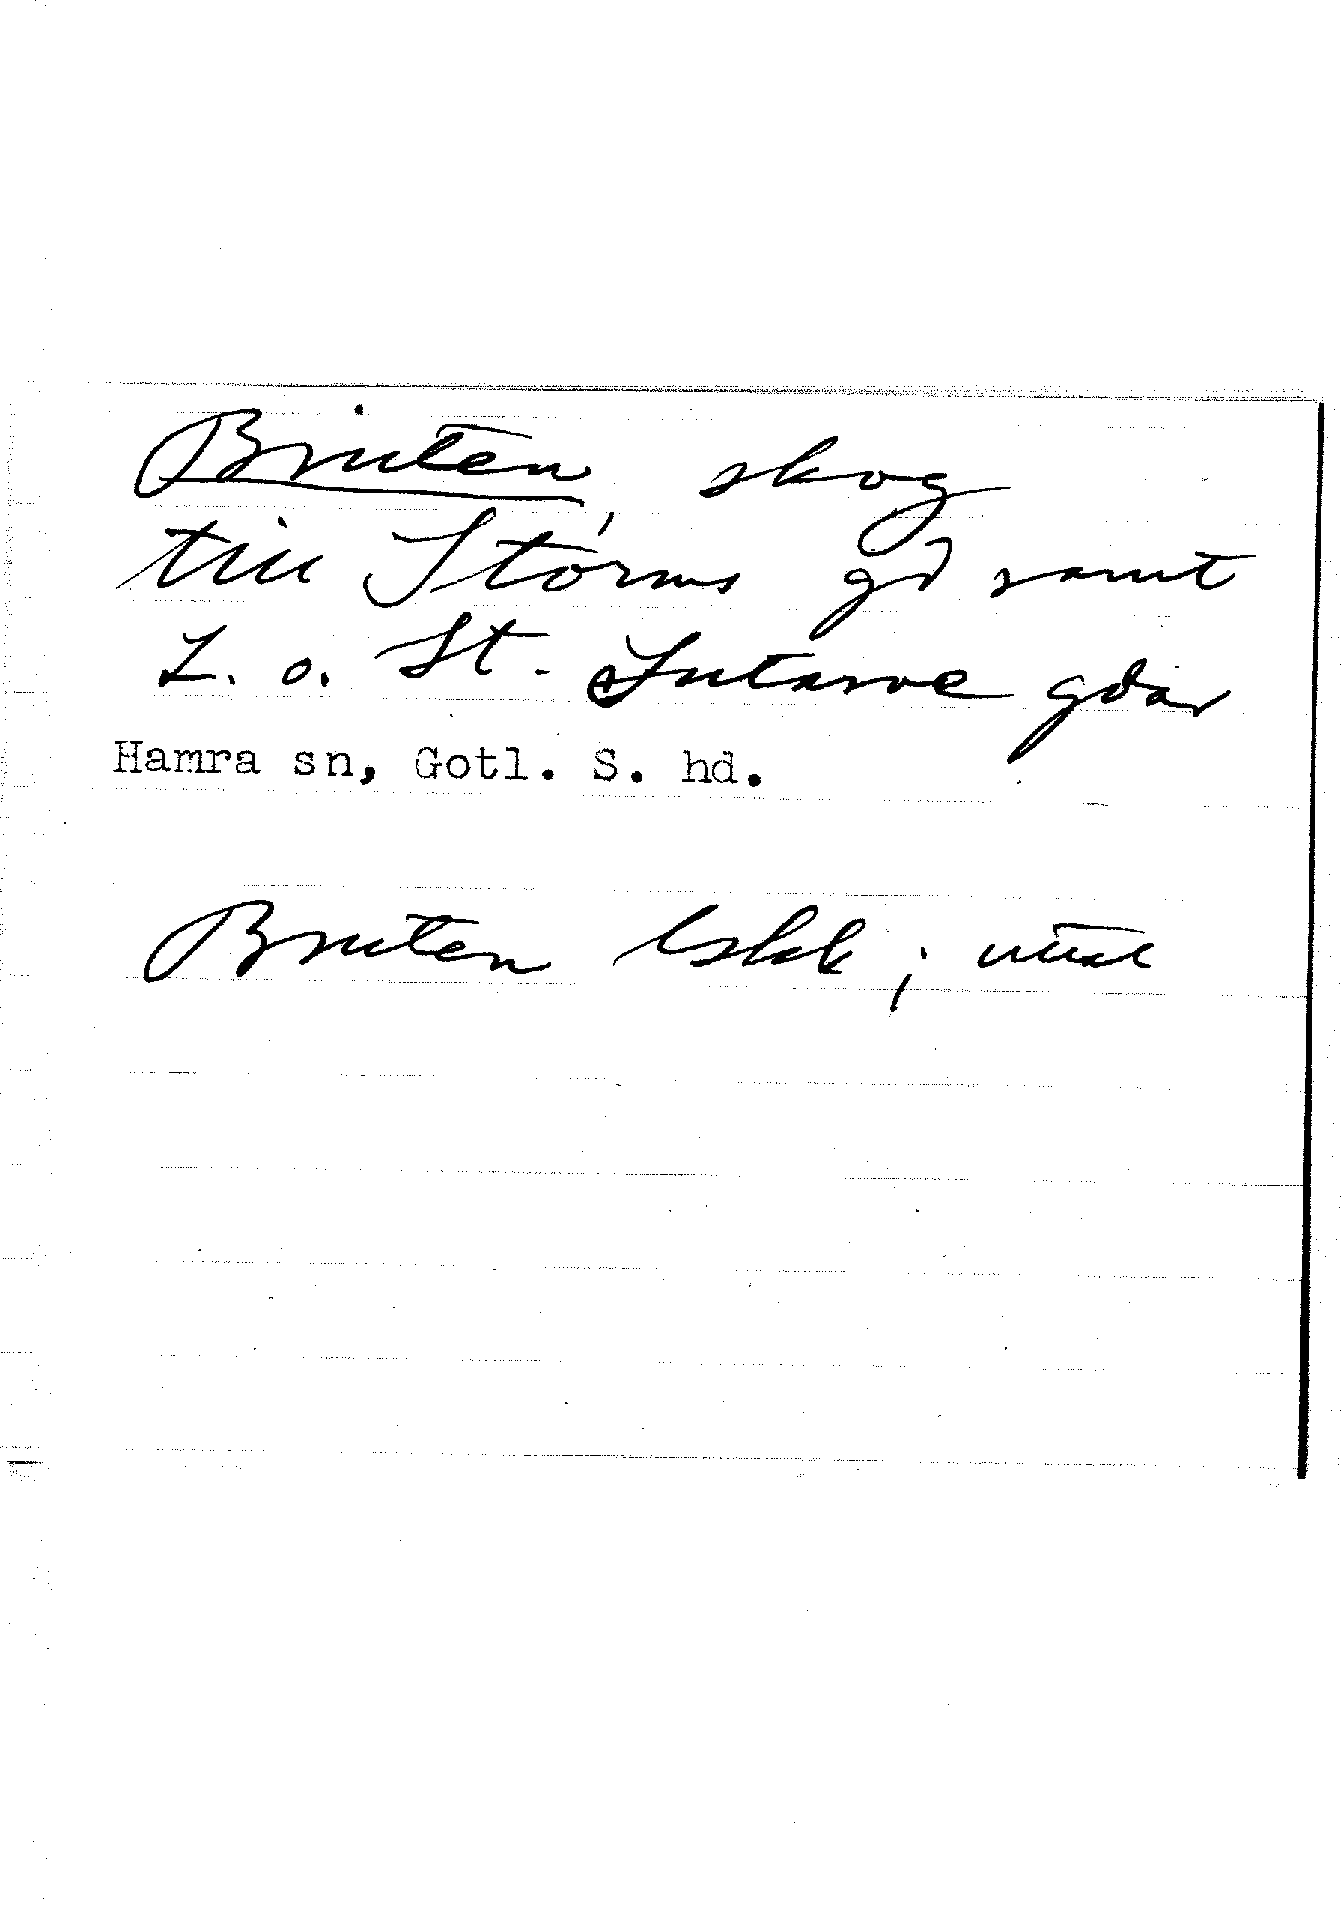 Bruten, skog
till Storms gd samt
L. o. St. Sutarve gdar
Hamra sn, Gotl. S. hd.
Bruten Lskk ; uttal